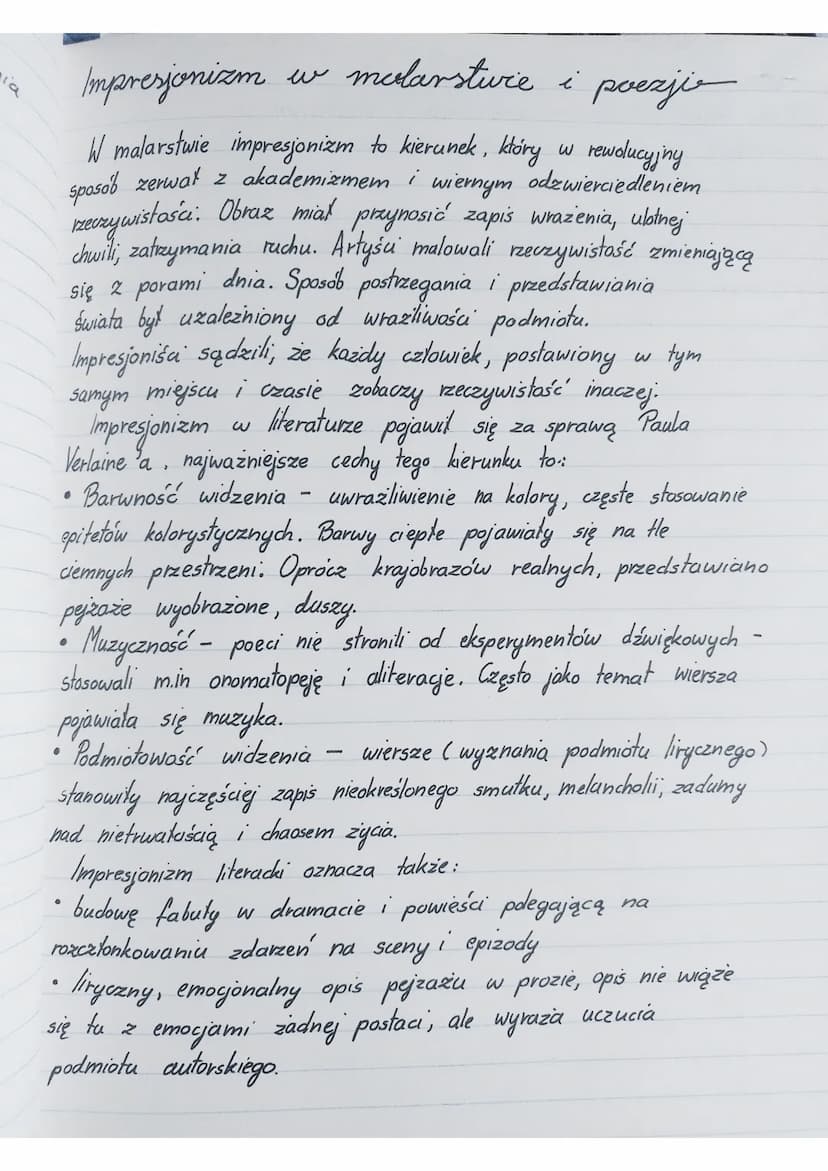 Impresjonizm w malarstwie i poezji
W malarstwie impresjonizm to kierunek, który w rewolucyjny
sposób zerwał z akademizmem i wiernym odzwierciedleniem
rzeczywistości. Obraz miał przynosić zapis wrażenia, ulotnej
chwili, zatrzymania ruchu. Artyści malowali rzeczywistość zmieniającą
się z porami dnia. Sposób postrzegania i przedstawiania
świata był uzależniony od wrażliwości podmiotu.
Impresjoniści sądzili, że każdy człowiek, postawiony w tym
samym miejscu i czasie zobaczy rzeczywistość inaczej.
Impresjonizm w literaturze pojawił się za sprawą Paula
Verlaine'a, najważniejsze cechy tego kierunku to:
• Barwność widzenia - uwrażliwienie na kolory, częste stosowanie
epitetów kolorystycznych. Barwy ciepłe pojawiały się na tle
ciemnych przestrzeni. Oprócz krajobrazów realnych, przedstawiano
pejzaże wyobrażone, duszy.
• Muzyczność - poeci nie stronili od eksperymentów dźwiękowych -
stosowali m.in onomatopeję i aliteracje. Często jako temat wiersza
pojawiała się muzyka.
• Podmiotowość widzenia - wiersze (wyznania podmiotu lirycznego)
stanowiły najczęściej zapis nieokreślonego smutku, melancholii, zadumy
nad nietrwałością i chaosem życia.
Impresjonizm literacki oznacza także:
• budowę fabuły w dramacie i powieści polegającą na
rozczłonkowaniu zdarzeń na sceny i epizody
• liryczny, emocjonalny opis pejzażu w prozie, opis nie wiąże
się tu z emocjami żadnej postaci, ale wyraża uczucia
podmiotu autorskiego.